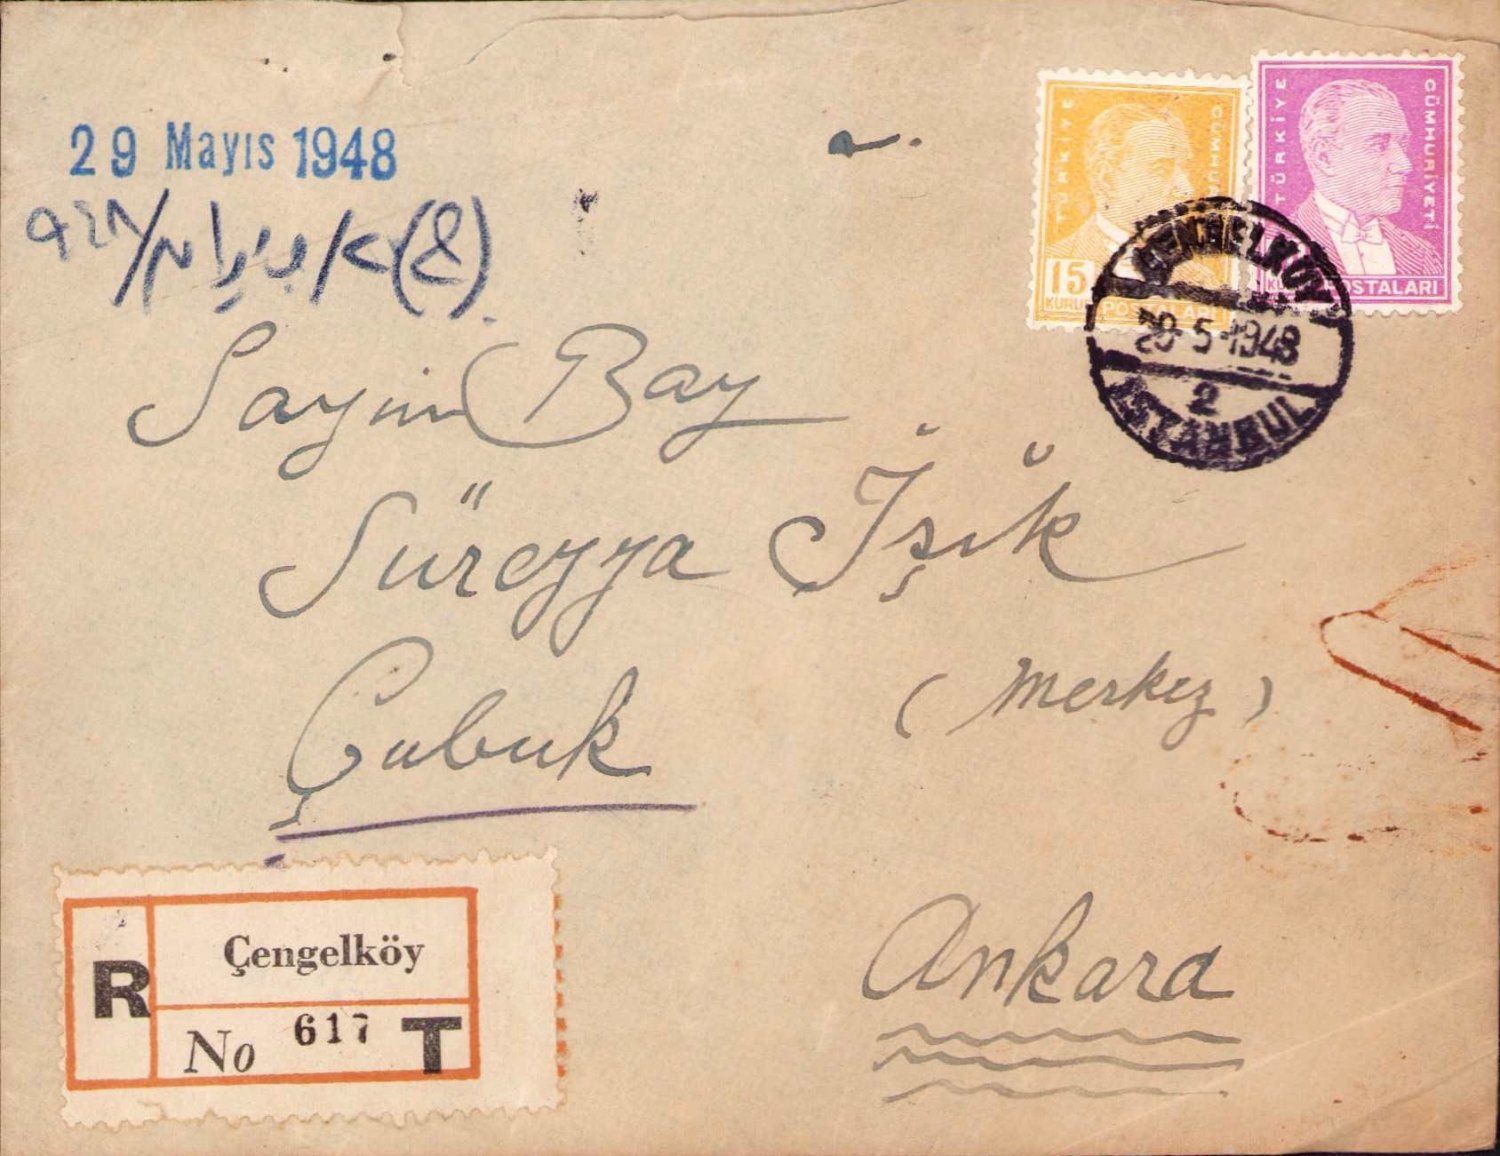 29 Mayıs 1948
TÜRKİYE CÜMHUR
15
KURU
POSTALARI
TÜRKİYE CÜMHURİYETİ
POSTALARI
ÇENGELKÖY
28-5-1948
2
İSTANBUL
Sayın Bay
Süreyya Işık
(Merkez)
Çubuk
Ankara
R
Çengelköy
No 617 T